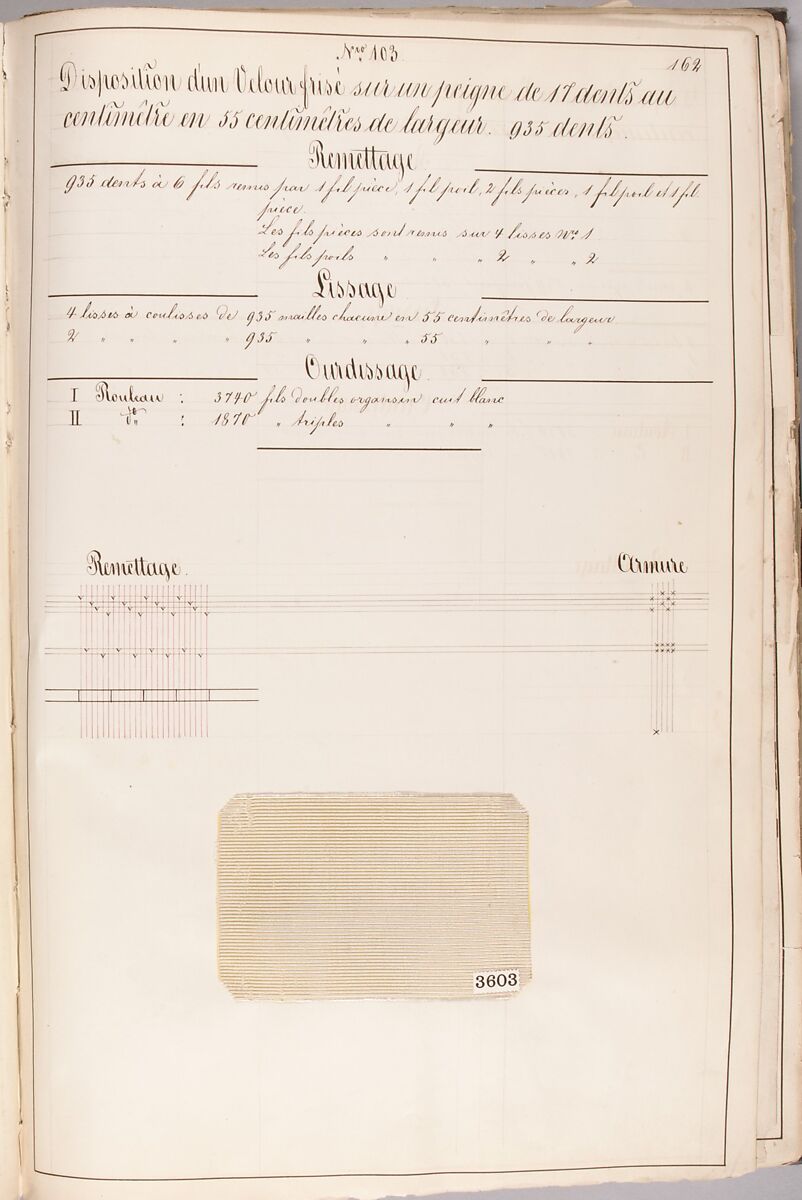 Nro 103.
162
Disposition d'un Velour frisé sur un peigne de 17 dents au
centimêtre en 55 centimêtres de largeur. 935 dents.
Remettage
935 dents à 6 fils remis par 1 fil pièce, 1 fil poil, 2 fils pièces, 1 fil poil et 1 fil
pièce.
Les fils pièces sont remis sur 4 lisses No 1
Les fils poils " " " 2 " " 2
Lissage
4 lisses à coulisses de 935 mailles chacune en 55 centimêtres de largeur
2 " " " " 935 " " " 55 " " "
Ourdissage
I Rouleau : 3740 fils doubles organsin cuit blanc
II do : 1870 " triples " " "
Remettage.
Armure
3603